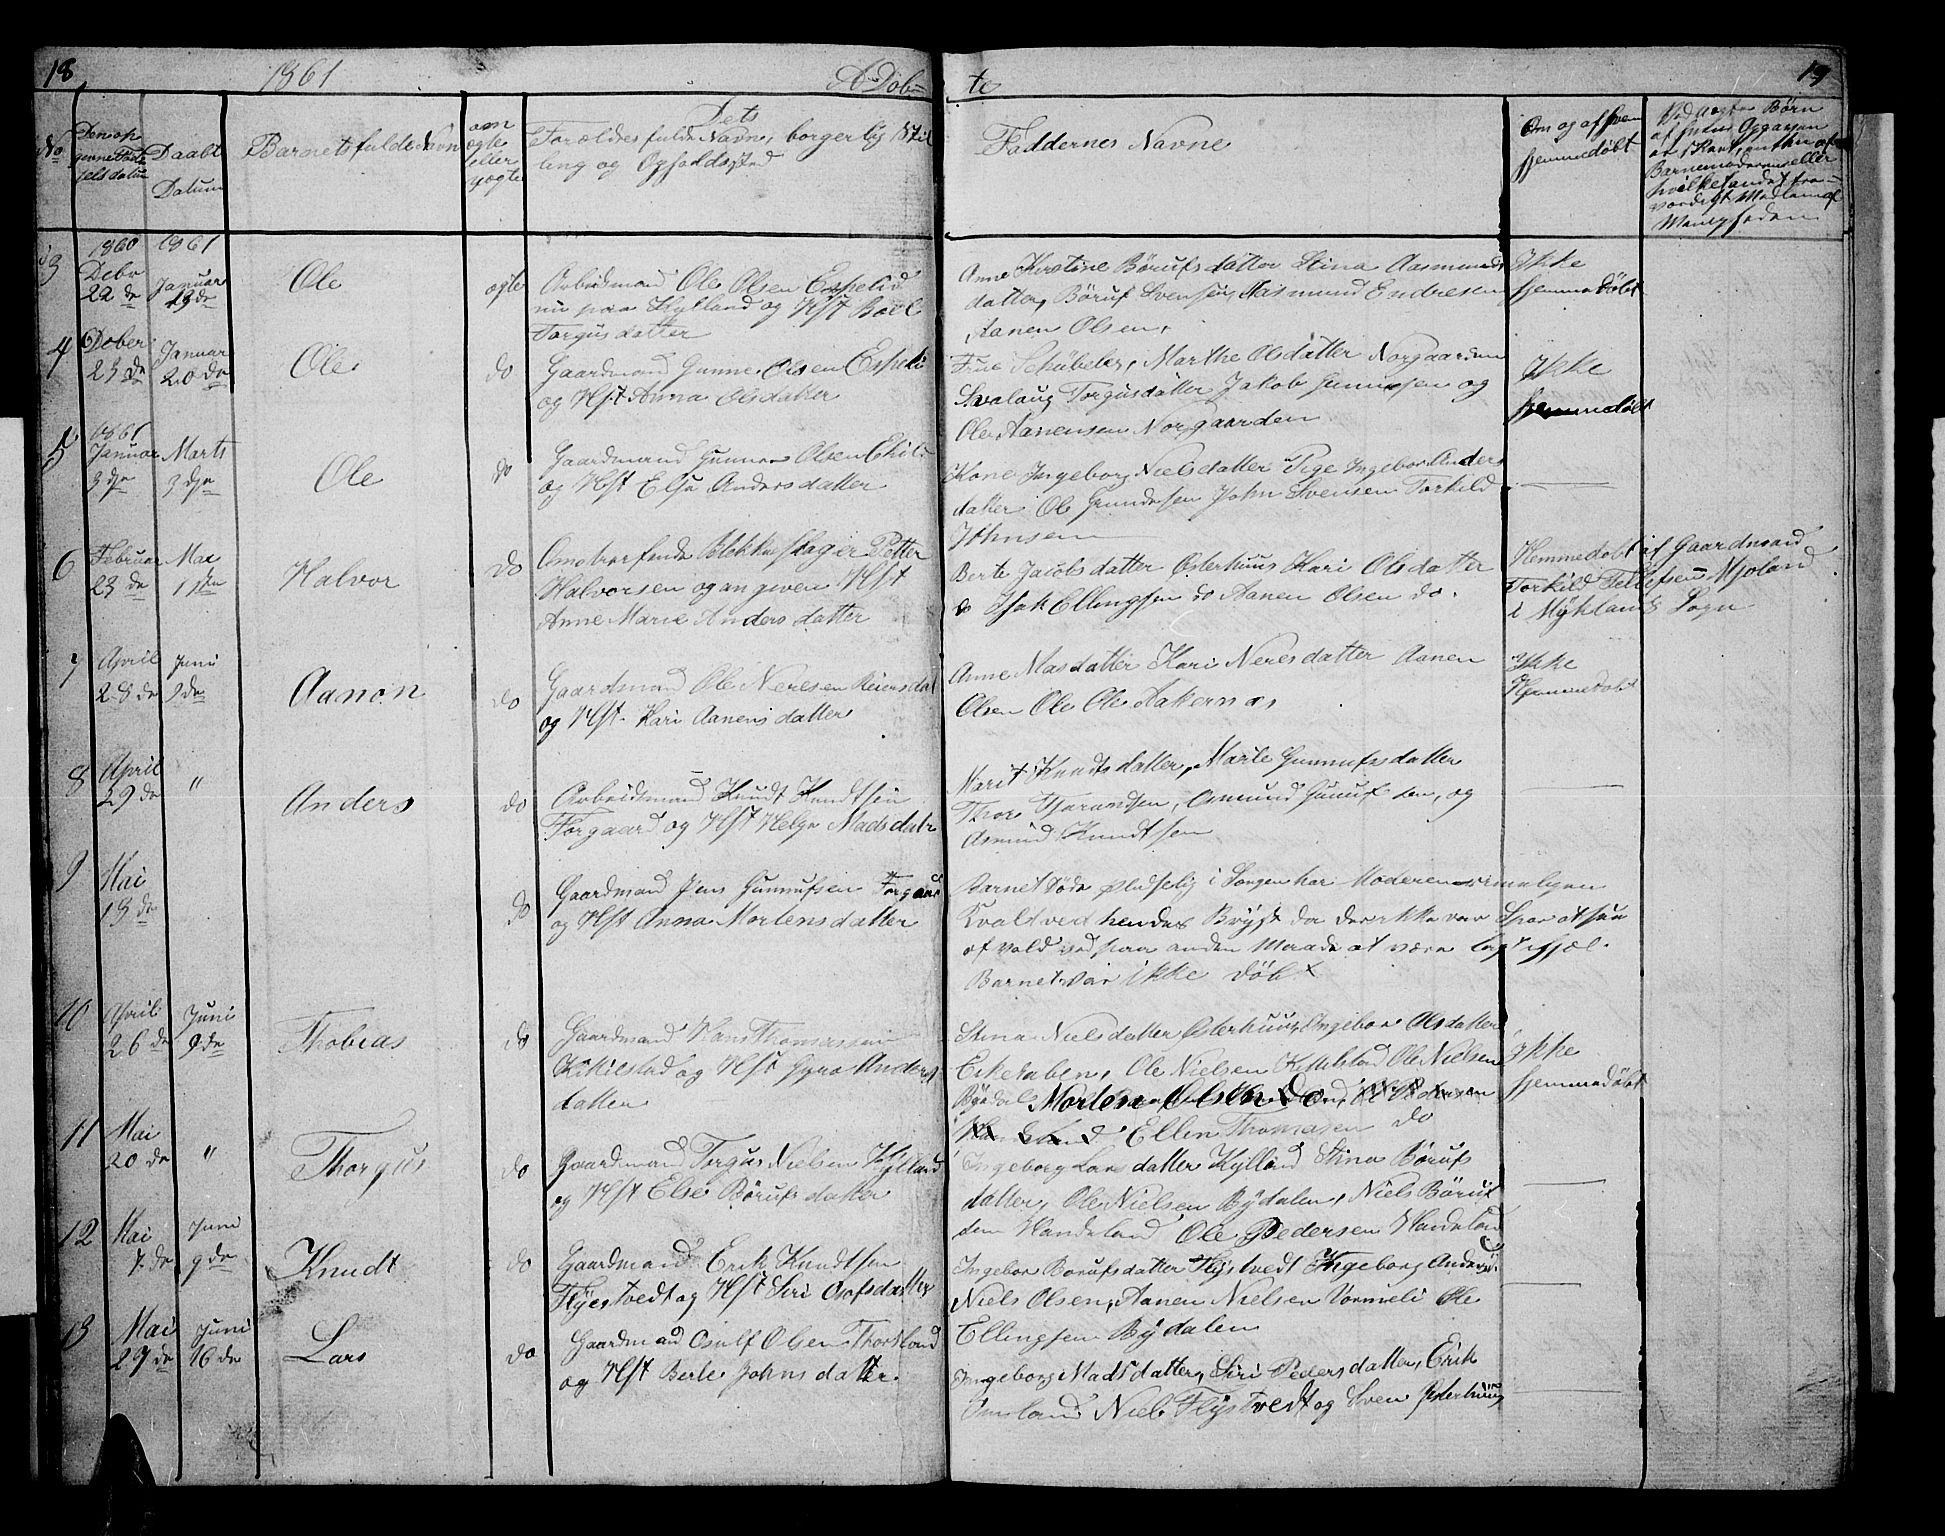 18
1861
A Døb=
te
19
No
Den op
givne Føds
selsdatum
Daabs
Datum
Barnets fulde Navn
om
ægte
eller
uægte
Dets
Forældres fulde Navne, borgerlig Stil
ling og Opholdssted
Faddernes Navne
Om og af hvem
hjemmedøbt
Ved uægte Børn
3
1860
Debr
22 de
1861
Januar
13 de
Ole
ægte
Arbeidsmand Ole Olsen Espelid
nu paa Kylland og Hst Boel
Torgusdatter
Anne Kirstine Børufsdatter Stina Aasmunds
datter, Børuf Svensen, Aasmund Endresen
Aanen Olsen,
Ikke
hjemmedøbt
4
Dober
23 de
Januar
20 de
Ole
do
Gaardmand Gunne Olsen Espeli
og Hst Anna Olsdatter
Frue Schübeler, Marthe Olsdatter Norgaarden
Svalaug Torgusdatter Jakob Gunnesen og
Ole Aanensen Norgaarden
Ikke
hjemmedøbt
5
1861
Januar
3 dje
Marts
3 dje
Ole
do
Gaardmand Gunnar Olsen
og Hst Else Andersdatter
Kone Ingeborg Nielsdatter Pige Ingebor Anders
datter Ole Gundersen John Svensen Torkild
Johnsen
6
Februar
23 de
Mai
1 ste
Halvor
do
Omstreifende Blikkenslager Petter
Halvorsen og angiven Hst
Anne Marie Andersdatter
Berte Jacobsdatter Østerhuus Kari Olsdatter
do Isak Ellingsen do Aanen Olsen do.
Hemmedøbt af Gaardmand
Torkild Tellefsen Mjoland
i Myklands Sogn
7
April
28 de
Juni
9 de
Aanon
do
Gaardmand Ole Neresen Reiersdal
og Hst. Kari Aanensdatter
Anne Masdatter Kari Neresdatter Aanen
Olsen Ole Ole Aakernas
Ikke
Hjemmedøbt
8
April
29 de
"
Anders
do
Arbeidsmand Knudt Knudtsen
Torgaard og Hst Helge Madsdatr
Marit Knudtsdatter, Marte Gunnufsdatter
Thore Tjerandsen, Osmund Gunufsen, og
Asmund Knudtsen
9
Mai
13 de
do
Gaardmand Jens Gunnufsen Torgaar
og Hst Anna Mortensdatter
Barnet døde Pludselig i Sengen har Moderen rimeligen
Kvalt ved hendes Bryst da der ikke var Spor at see
af vold ved paa anden Maade at være lagt ihjæl.
Barnet var ikke døbt
10
April
26 de
Juni
9 de
Thobias
do
Gaardmand Hans Thomassen
Kikilstad og Hst Gyro Anders
datter
Stina Nielsdatter Østerhuus Ingebor Olsdatter
Eikelaben, Ole Nielsen Kittilstad Ole Nielsen
Bydal Morten Olsen Do
Ellen Thomasen do
Ikke
hjemmedøbt
11
Mai
20 de
"
Thorgus
do
Gaardmand Torgus Nielsen Kylland
og Hst Else Børufsdatter
Ingeborg Larsdatter Kylland Stina Børufs
datter, Ole Nielsen Bydalen, Niels Børuf
sen Handeland Ole Pedersen Handeland
12
Mai
7. de
Juni
9 de
Knudt
do
Gaardmand Erik Knudtsen
Flystvedt og Hst Siri Olofsdatter
Ingebor Børufsdatter Flystvedt Ingeborg Andersd.
Niels Olsen, Aanen Nielsen Vormeli Ole
Ellingsen Bydalen
13
Mai
27 de
Juni
16 de
Lars
do
Gaardmand Osulf Olsen Thorsland
og Hst Berte Johnsdatter.
Ingeborg Madsdatter, Siri Pedersdatter, Erik
Omland Niels Flystvedt og Sven Østerhuus